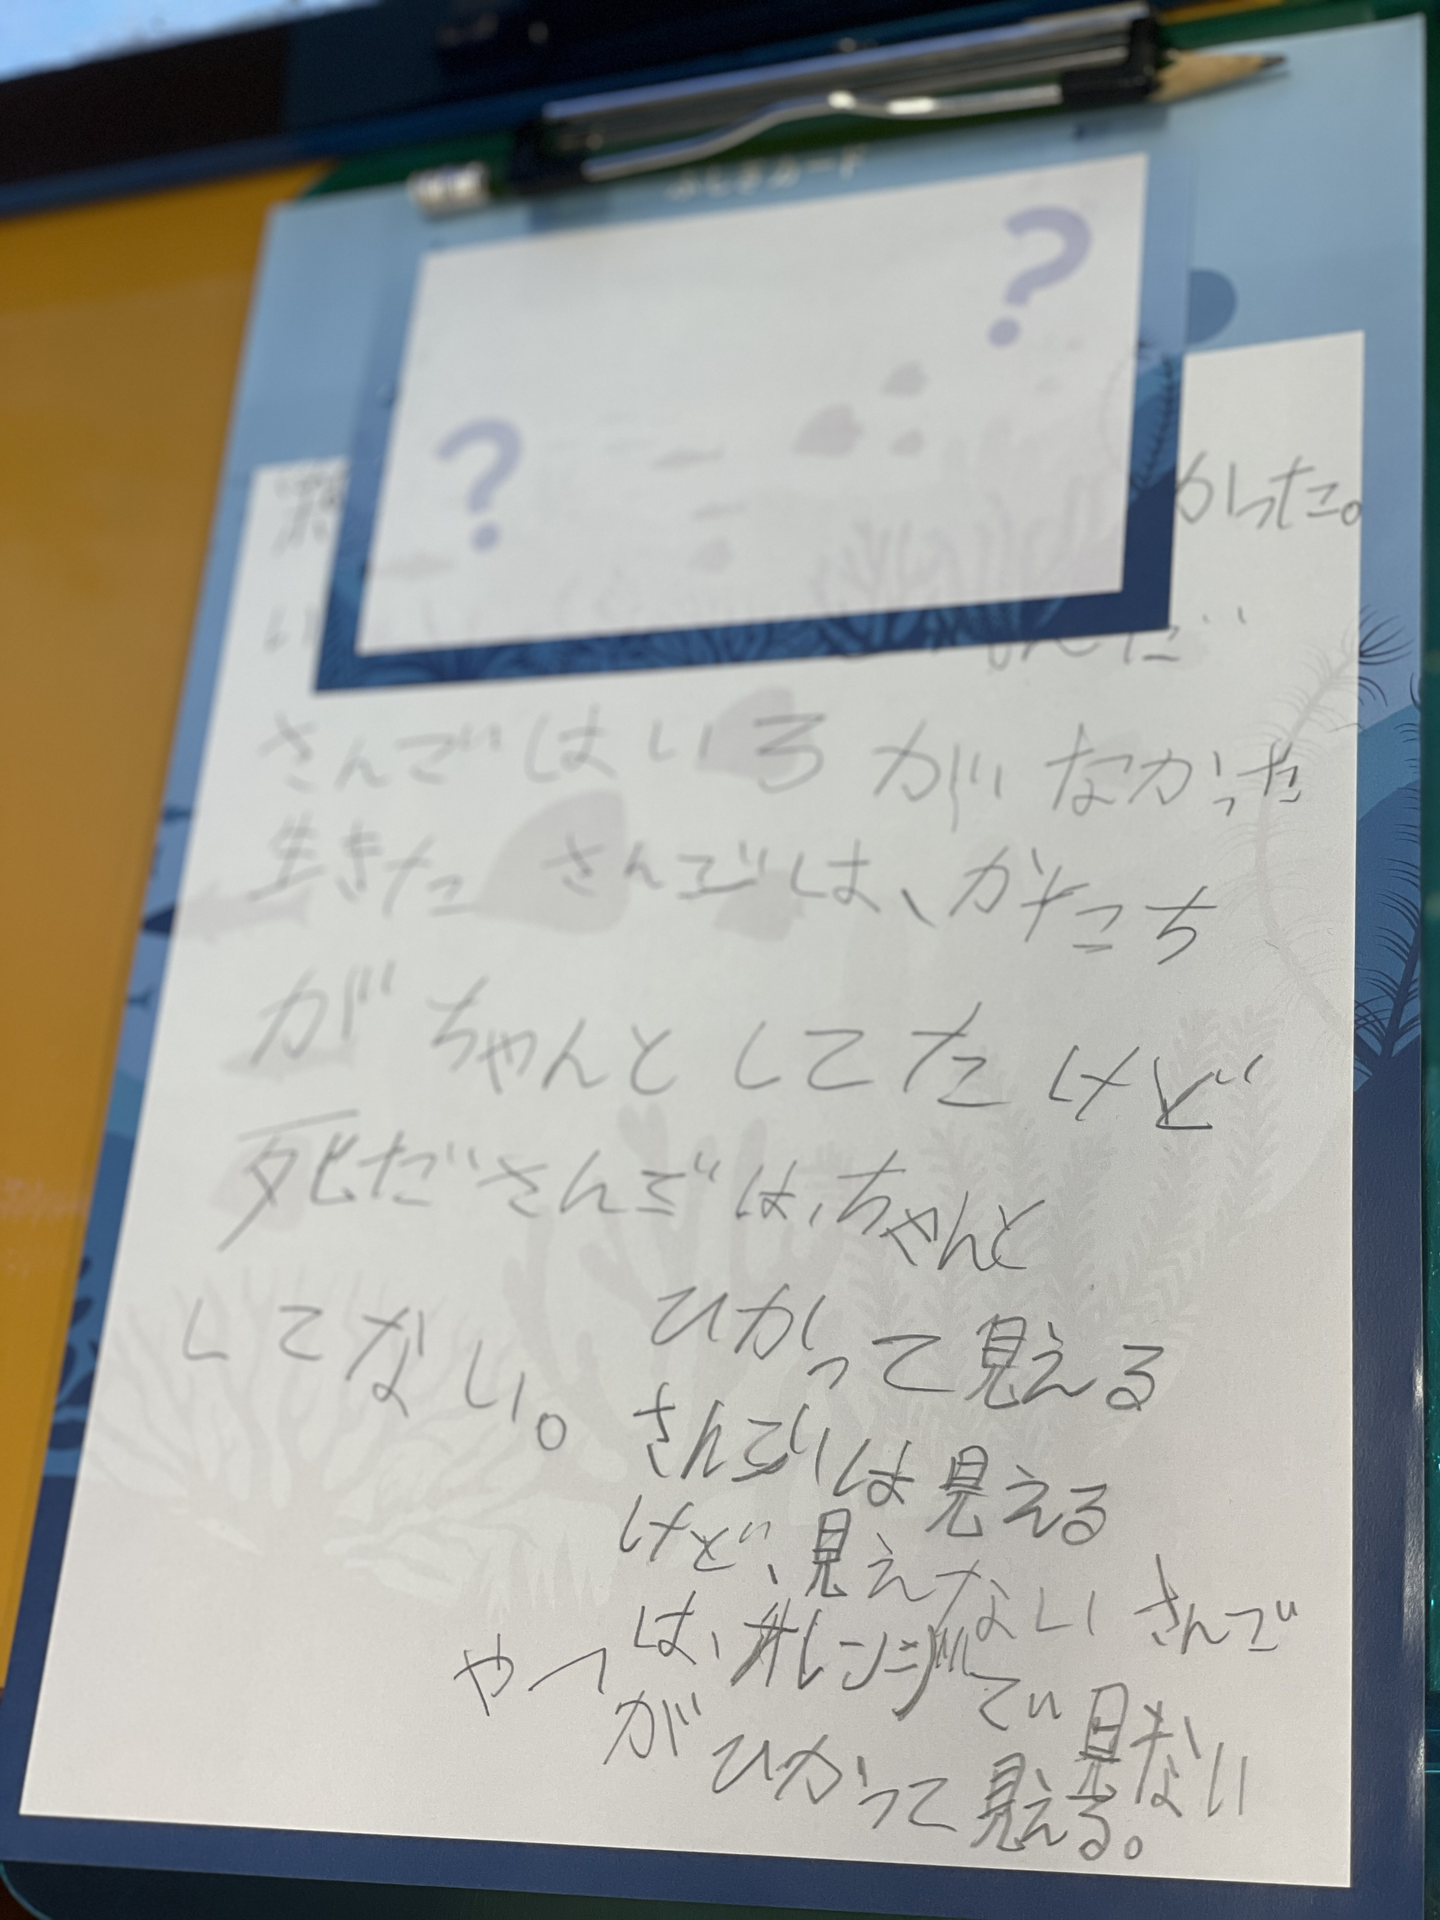 ふしぎカード
?
?
かった。
んだ
さんごはいろがなかった
生きたさんごは、かたち
がちゃんとしてたけど
死ださんごは、ちゃんと
してない。
ひかって見える
さんごは見える
けど、見えないさんご
は、オレンジで見ない
やつがひかって見える。